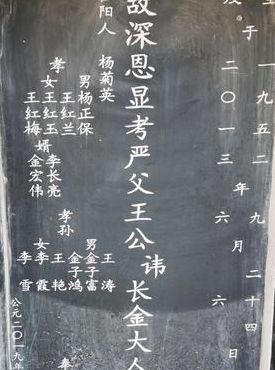 于一九五二年九月二十四日
二〇一三年六月六日
故深恩显考严父王公讳长金大人
阳人 杨菊英
孝
男杨正保
王红兰
女王红玉
王红梅
婿李长亮
金宏伟
孝孙
男王涛
金子富
金子鸿
女王艳
李霞
李雪
公元二〇一九年